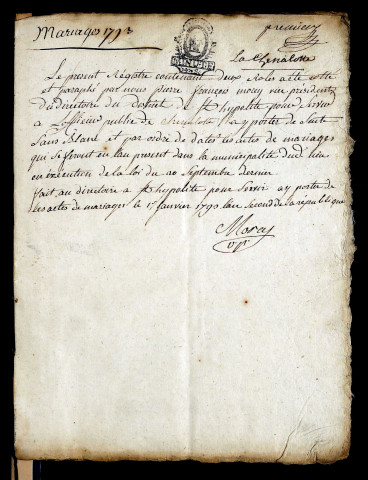 Mariages 1793
premier
La Chenalotte
Le present Registre contenant deux Roles a eté cotté
et paraphé par nous pierre françois moray vice président
Du directoire du district de St hypolite pour servir
a L'officier public de Chenalotte a y porter de Suite
Sans Blanc et par ordre de dates les actes de mariages
qui se feront en l'an present dans la municipalité dud. lieu
en exécution de la loi du 20 septembre dernier
fait au directoire a St hypolite pour servir a y porter
les actes de mariages le 1er janvier 1793 l'an second de la république
Moray